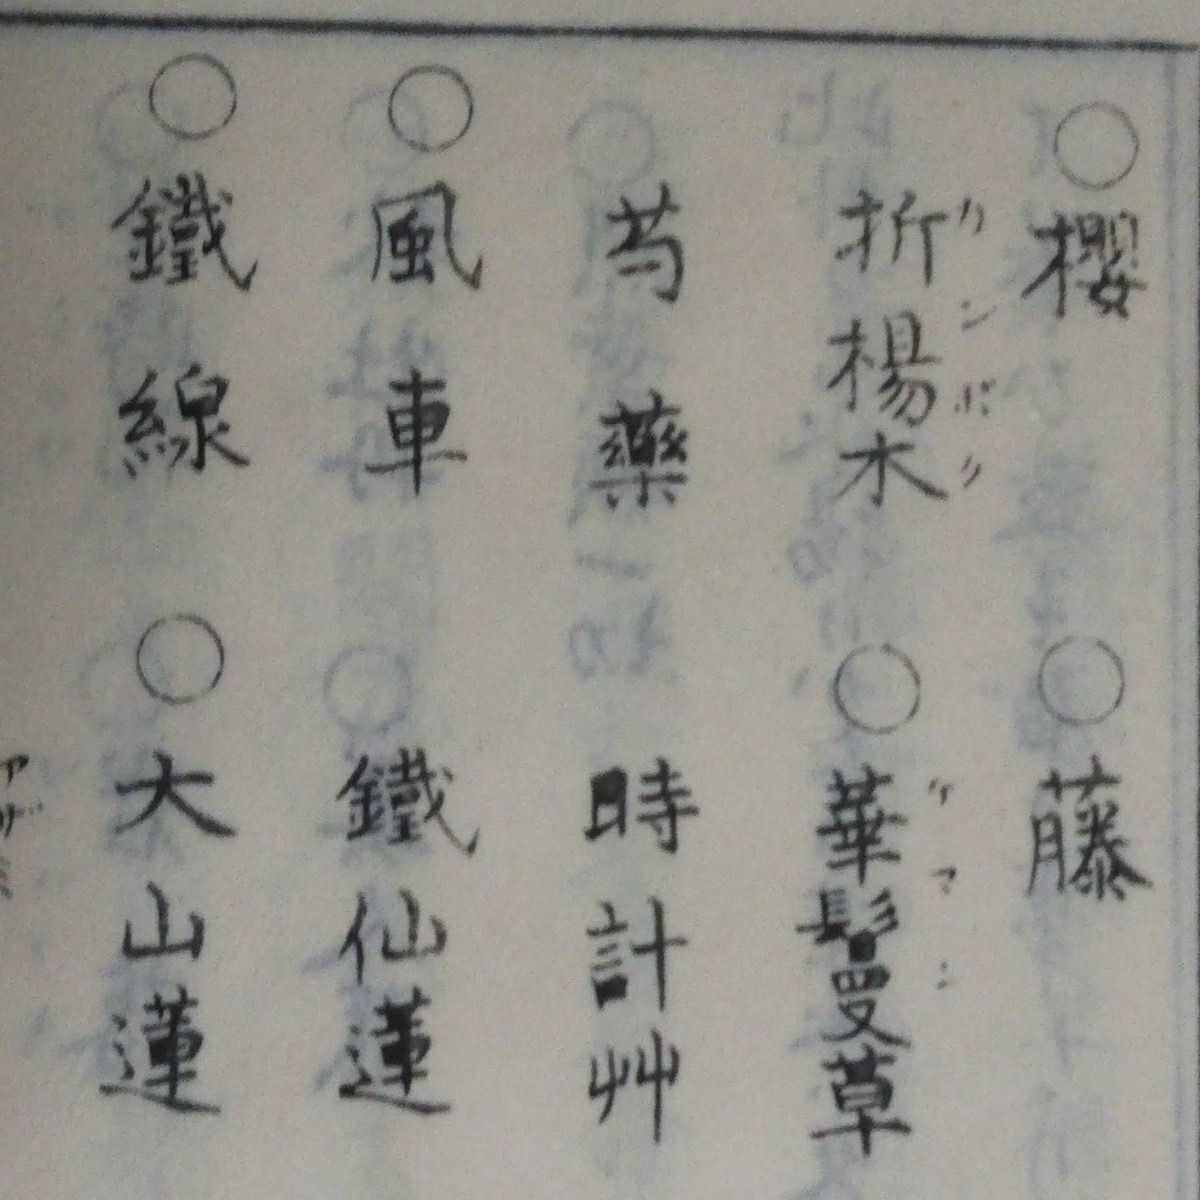 ○櫻 ○藤
折楊木 ○華鬘草
リンボク ケマン
芍藥 時計艸
○風車 鐵仙蓮
○鐵線 ○大山蓮